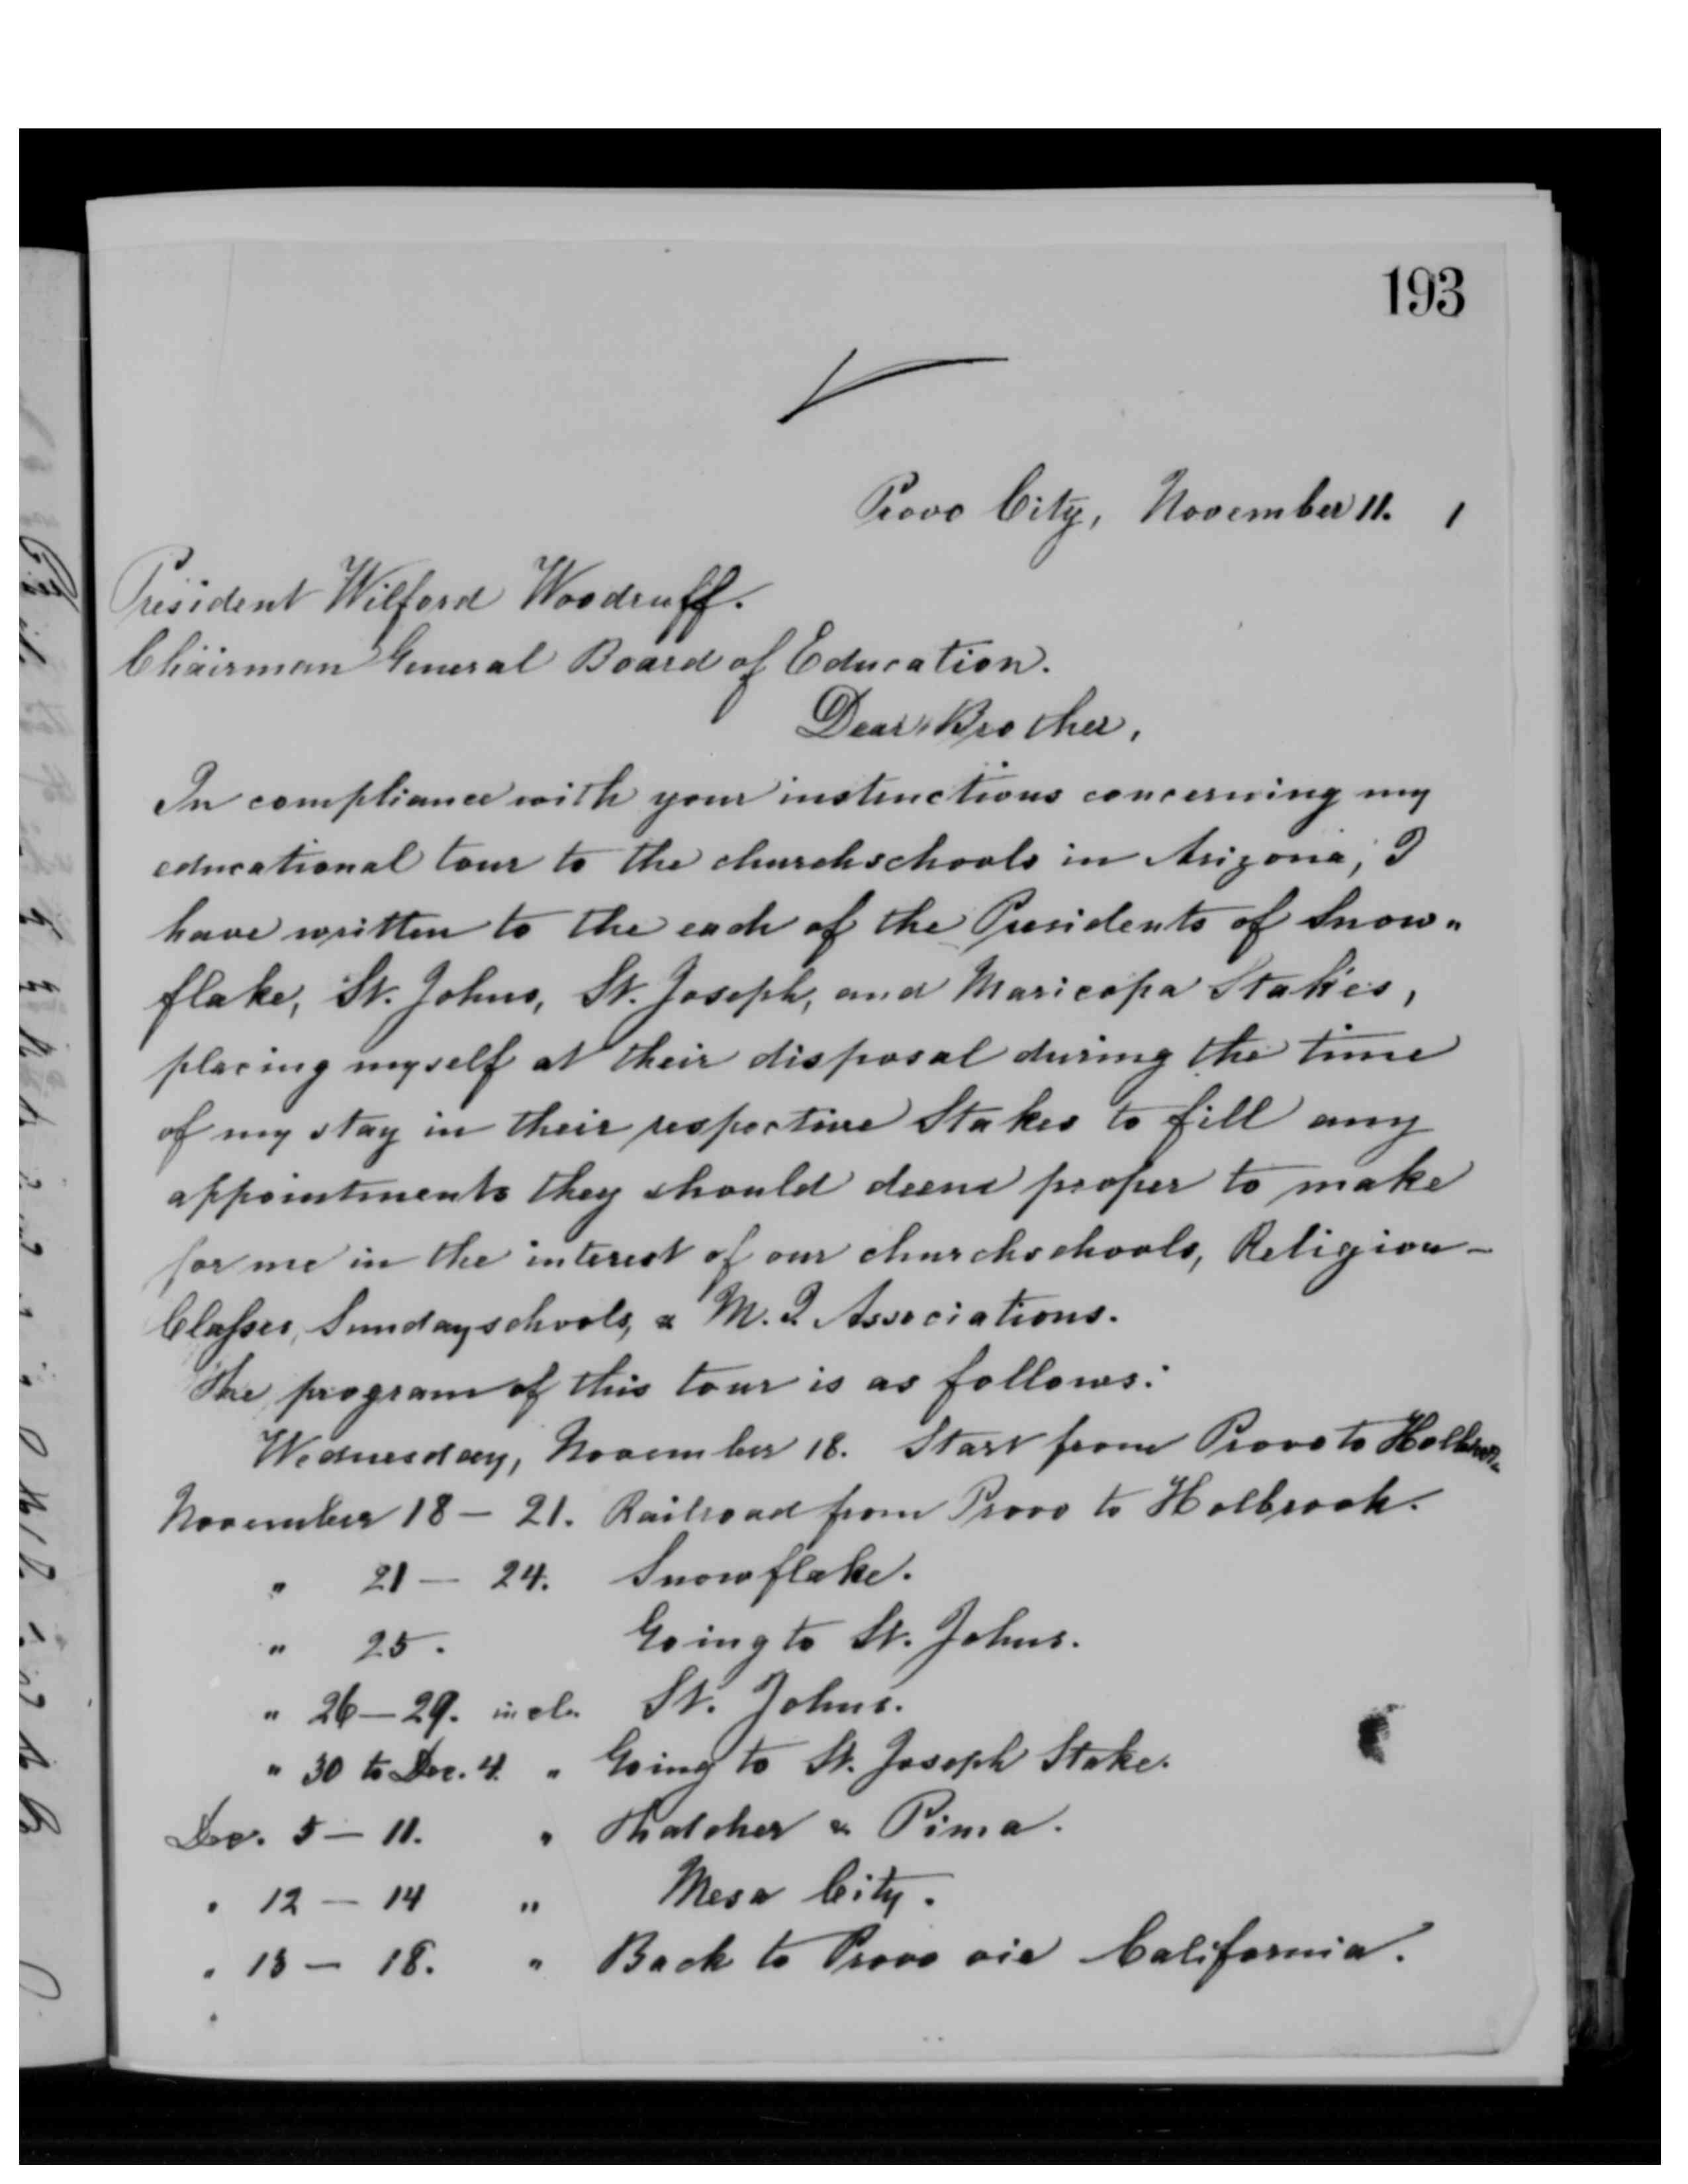 193
Provo City, November 11. 1
President Wilford Woodruff.
Chairman General Board of Education.
Dear Brother,
In compliance with your instructions concerning my
educational tour to the churchschools in Arizona, I
have written to the each of the Presidents of Snow-
flake, St. Johns, St. Joseph, and Maricopa Stakes,
placing myself at their disposal during the time
of my stay in their respective Stakes to fill any
appointments they should deem proper to make
for me in the interest of our churchschools, Religion-
Classes, Sundayschools, & M. I. Associations.
The program of this tour is as follows:
Wednesday, November 18. Start from Provo to
November 18 – 21. Railroad from Provo to Holbrook.
" 21 – 24. Snowflake.
" 25. Going to St. Johns.
" 26 – 29. incl. St. Johns.
" 30 to Dec. 4. " Going to St. Joseph Stake.
Dec. 5 – 11. " Thatcher & Pima.
" 12 – 14 " Mesa City.
" – 18. " Back to Provo via California.